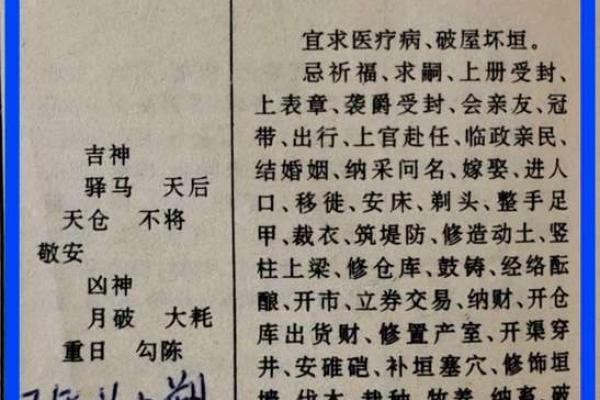 吉神
驿马 天后
天仓 不将
敬安
凶神
月破 大耗
重日 勾陈
宜求医疗病、破屋坏垣。
忌祈福、求嗣、上册受封、
上表章、袭爵受封、会亲友、冠
带、出行、上官赴任、临政亲民、
结婚姻、纳采问名、嫁娶、进人
口、移徙、安床、剃头、整手足
甲、裁衣、筑堤防、修造动土、竖
柱上梁、修仓库、鼓铸、经络酝
酿、开市、立券交易、纳财、开仓
库出货财、修置产室、开渠穿
井、安碓硙、补垣塞穴、修饰垣
墙、伐木、栽种、牧养、纳畜、破